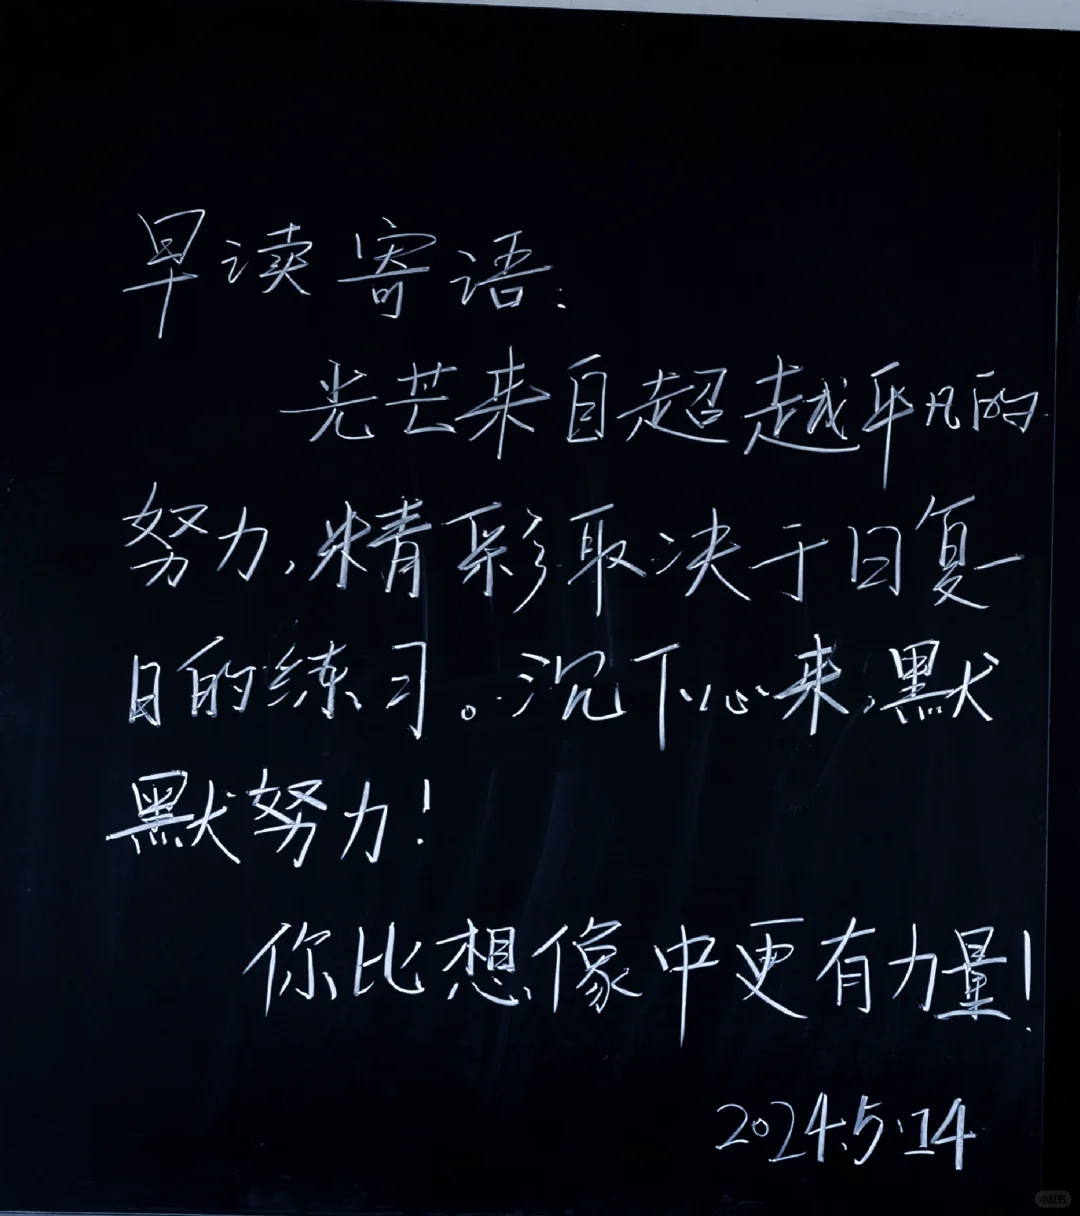 早读寄语:
光芒来自超越平凡的
努力,精彩取决于日复一
日的练习。沉下心来,默
默努力!
你比想像中更有力量!
2024.5.14
小红书